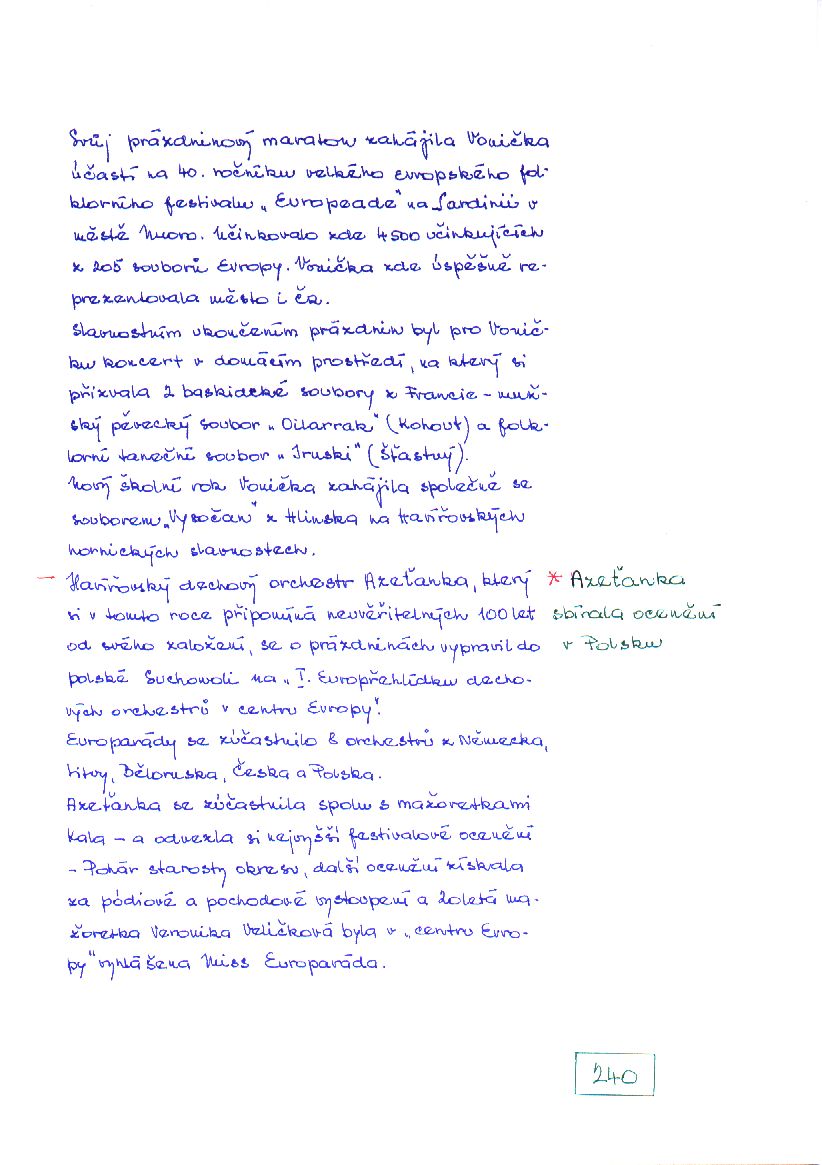 Svůj prázdninový maraton zahájila Vonička
účastí na 40. ročníku velkého evropského fol-
klorního festivalu „Europeade" na Sardinii v
městě Nuoro. Účinkovalo zde 4500 účinkujících
z 205 souborů Evropy. Vonička zde úspěšně re-
prezentovala město i ČR.
Slavnostním ukončením prázdnin byl pro Vonič-
ku koncert v domácím prostředí, na který si
přizvala 2 baskidcké soubory z Francie – muž-
ský pěvecký soubor „Oilarrak" (Kohout) a folk-
lorní taneční soubor „Iruski" (Šťastný).
Nový školní rok Vonička zahájila společně se
souborem „Vysočan" z Hlinska na Havířovských
hornických slavnostech.
– Havířovský dechový orchestr Azeťanka, který
si v tomto roce připomíná neuvěřitelných 100 let
od svého založení, se o prázdninách vypravil do
polské Suchowoli na „I. Europřehlídku decho-
vých orchestrů v centru Evropy".
Europarády se zúčastnilo 8 orchestrů z Německa,
Litvy, Běloruska, Česka a Polska.
Azeťanka se zúčastnila spolu s mažoretkami
Kala – a odvezla si nejvyšší festivalové ocenění
– Pohár starosty okresu, další ocenění získala
za pódiové a pochodové vystoupení a 20letá ma-
žoretka Veronika Veličková byla v „centru Evro-
py" vyhlášena Miss Europaráda.
* Azeťanka
sbírala ocenění
v Polsku
240